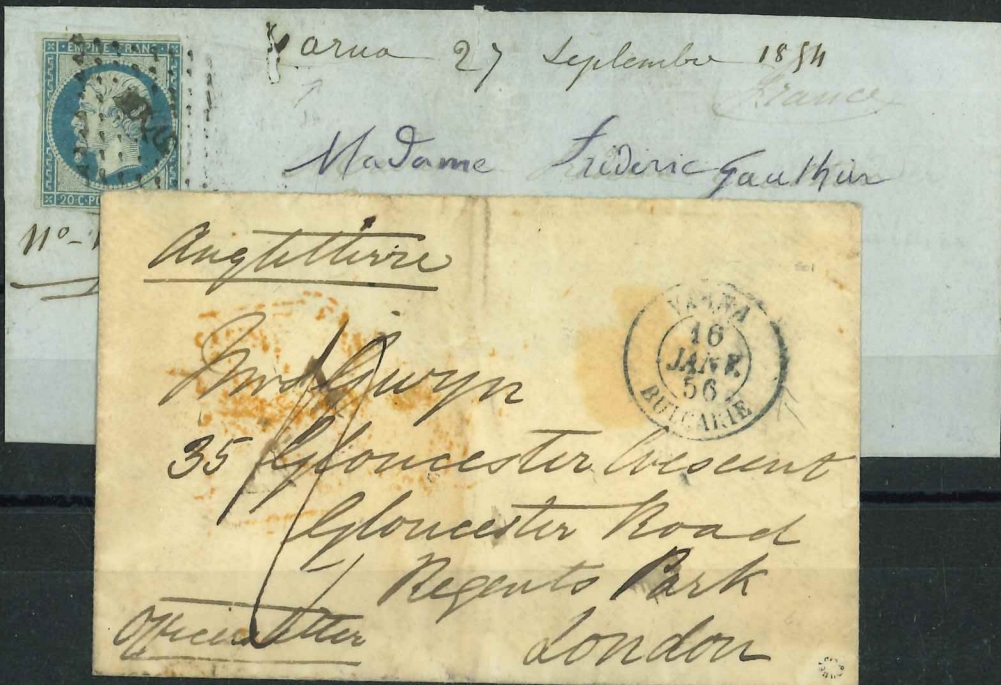 EMPIRE FRANC
Varna 27 Septembre 1854
France
Madame Frédéric Gauthier
20 C. PO
N°
Angleterre
VARNA
16
JANV.
56
BULGARIE
Mrs Gwyn
35 Gloucester Crescent
Gloucester Road
Regents Park
London
Officers letter